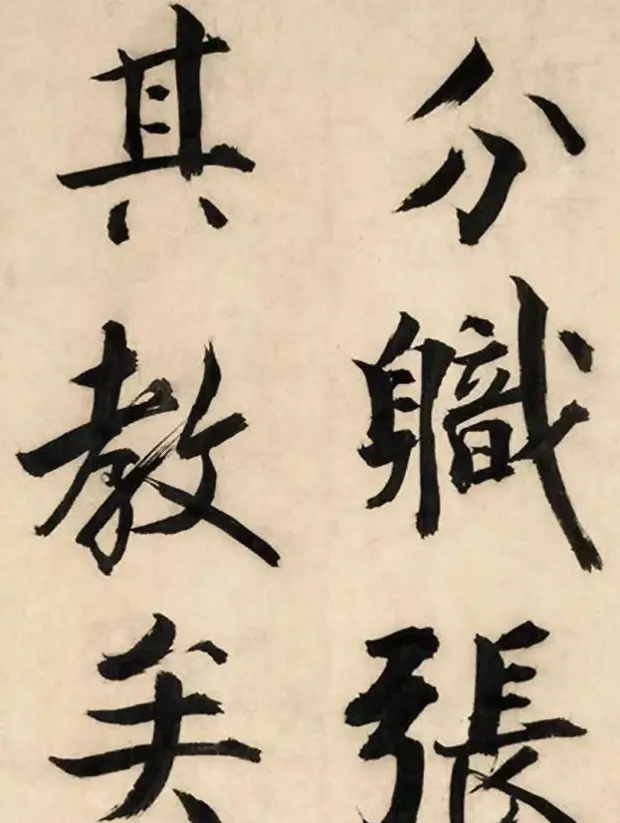 分軄張
其教矣